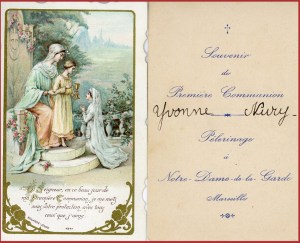 Seigneur, en ce beau jour de
ma Première Communion, je me mets
sous votre protection avec tous
ceux que j'aime
Souvenir
de
Première Communion
Yvonne
Pèlerinage
à
Notre-Dame-de-la-Garde
Marseille